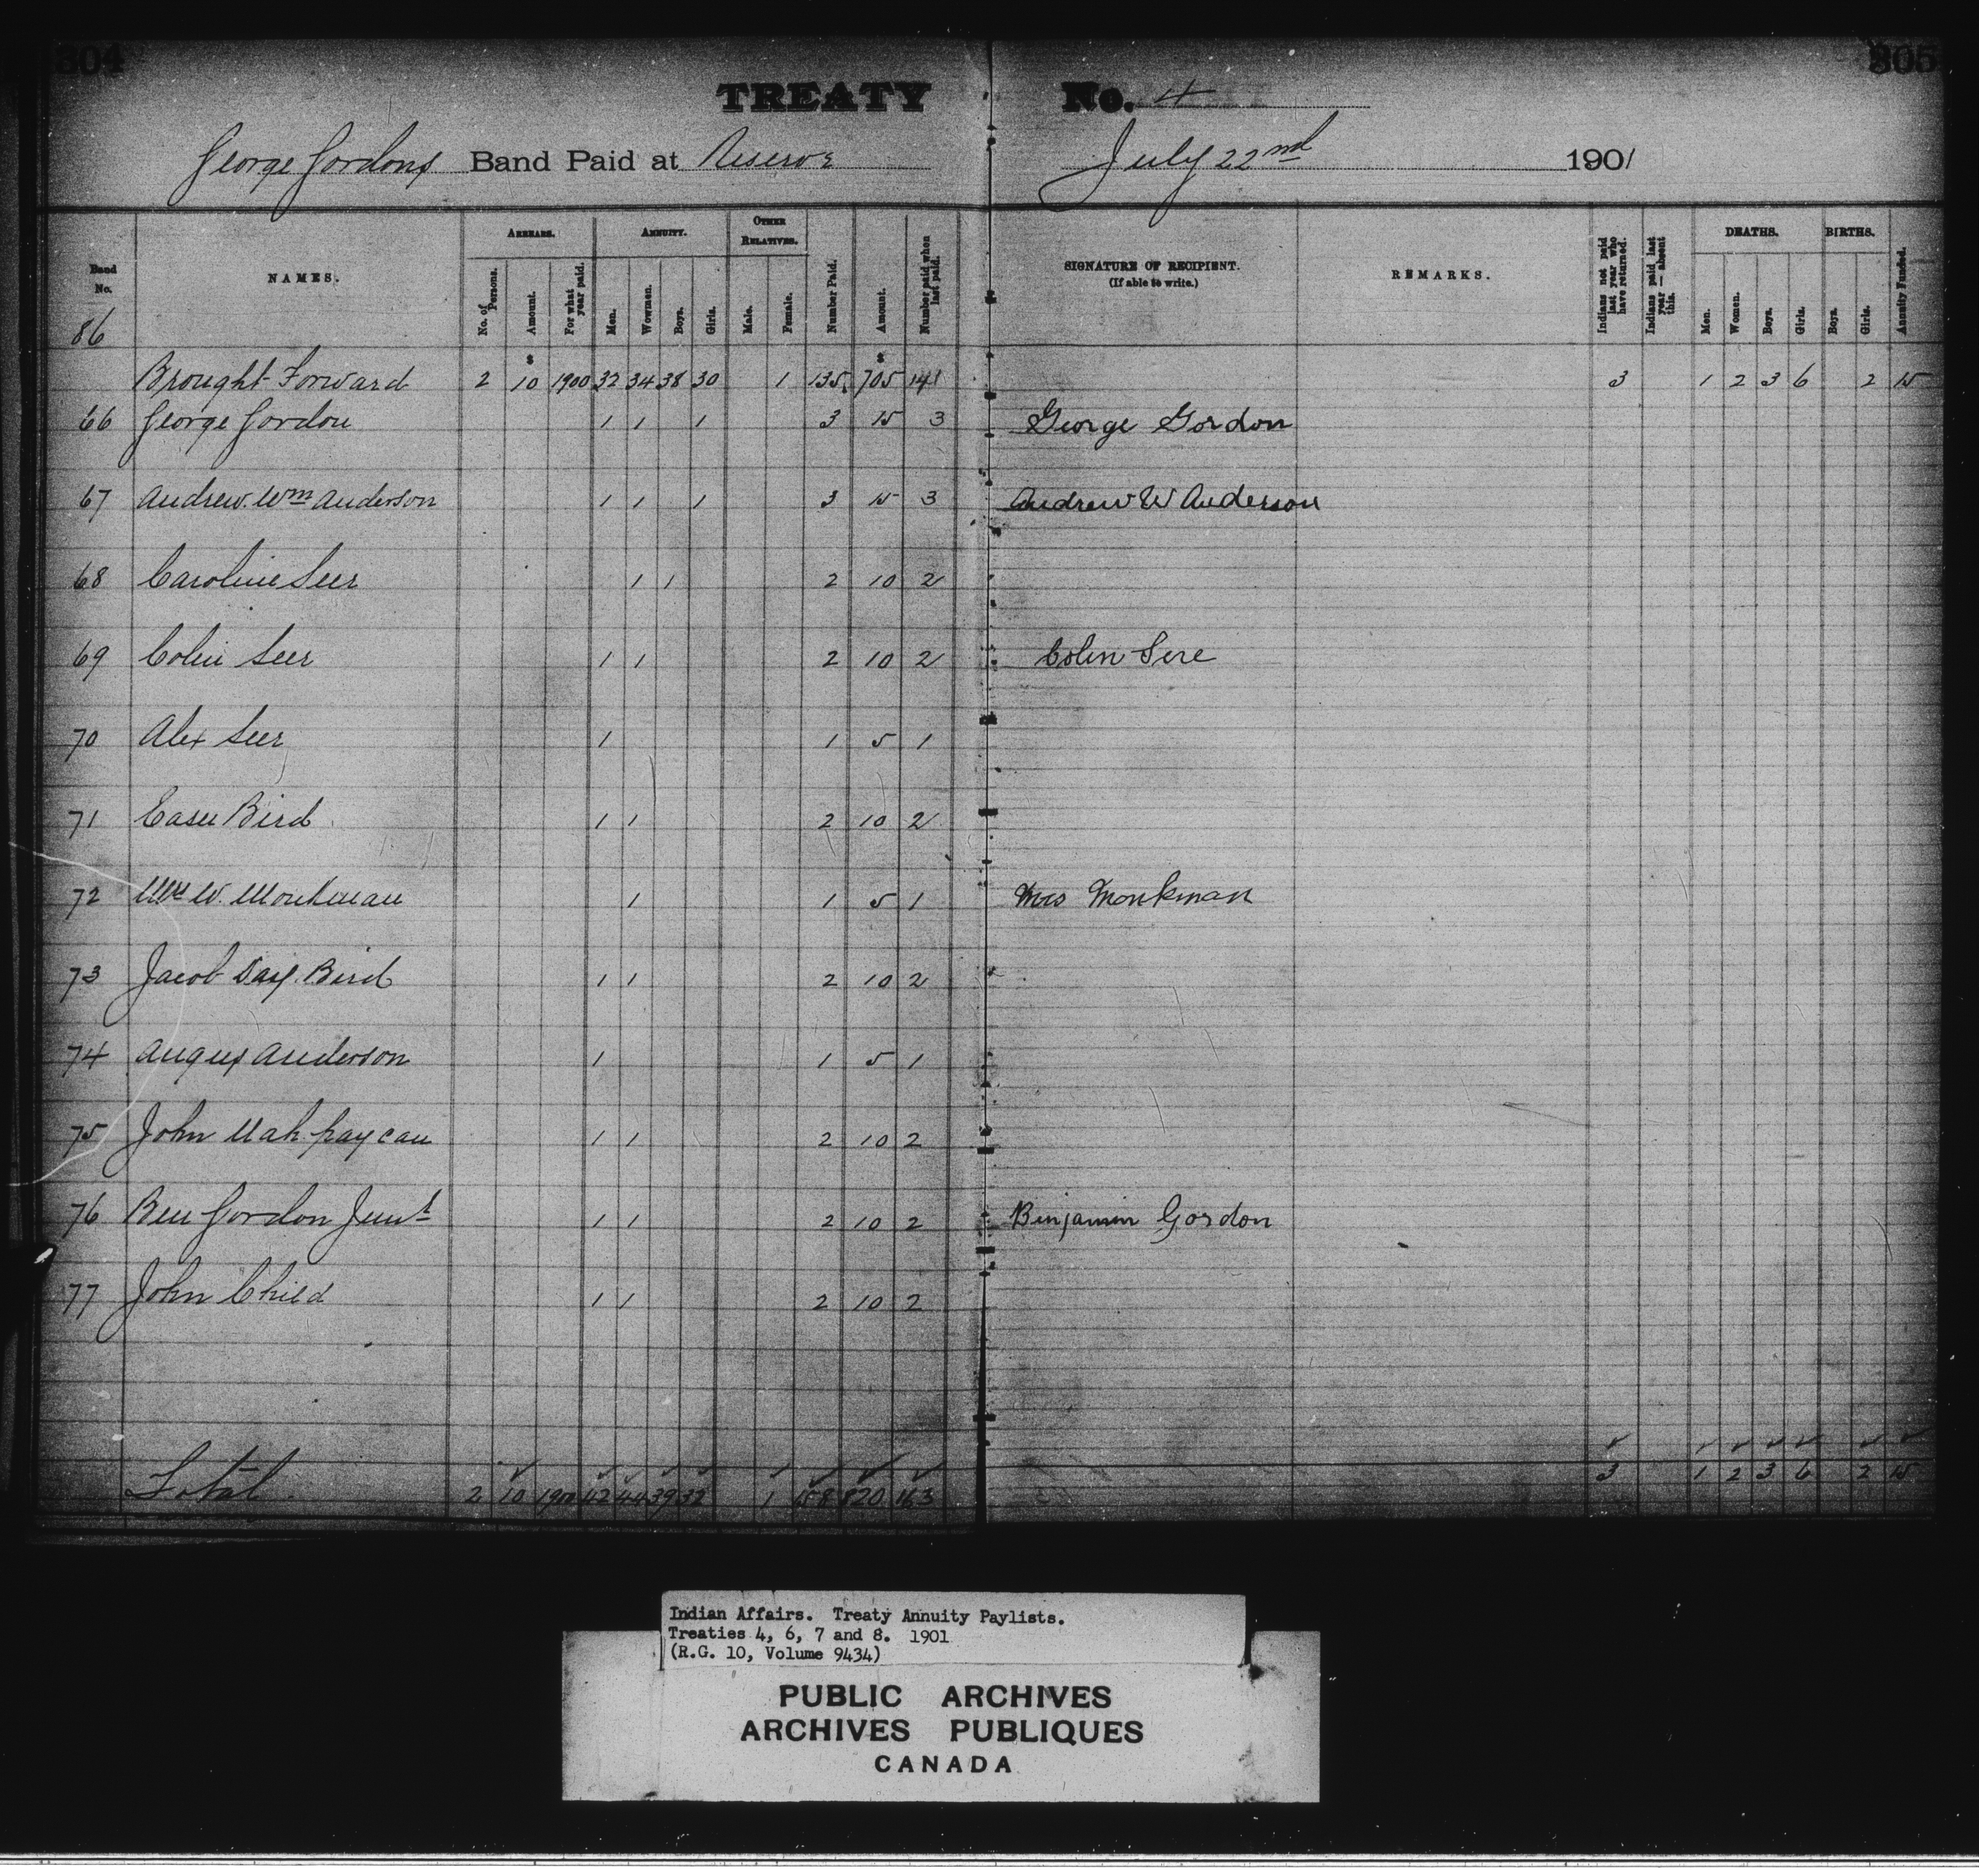 304 305
TREATY No. 4
George Gordons Band Paid at Reserve July 22nd 1901
Band No. NAMES. ARREARS. ANNUITY. OTHER RELATIVES. Number Paid. Amount. Number paid when last paid. SIGNATURE OF RECIPIENT. (If able to write.) REMARKS. Indians not paid last year who have returned. Indians paid last year — absent this. DEATHS. BIRTHS. Annuity Funded.
No. of Persons. Amount. For what year paid. Men. Wowmen. Boys. Girls. Male. Female. Men. Women. Boys. Girls. Boys. Girls.
86
$ $
Brought Forward 2 10 1900 32 34 38 30 1 135 705 141 3 1 2 3 6 2 15
66 George Gordon 1 1 1 3 15 3 George Gordon
67 Andrew. Wm Anderson 1 1 1 3 15 3 Andrew W Anderson
68 Caroline Seer 1 1 2 10 2
69 Colin Seer 1 1 2 10 2 Colin Sere
70 Alex Seer 1 1 5 1
71 Bird 1 1 2 10 2
72 Mrs W. Monkman 1 1 5 1 Mrs Monkman
73 Jacob Day Bird 1 1 2 10 2
74 Angus Anderson 1 1 5 1
75 John 1 1 2 10 2
76 Ben Gordon Junr 1 1 2 10 2 Binjamin Gordon
77 John Child 1 1 2 10 2
Total 2 10 1900 42 44 39 32 1 158 820 163 3 1 2 3 6 2 15
Indian Affairs. Treaty Annuity Paylists.
Treaties 4, 6, 7 and 8. 1901
(R.G. 10, Volume 9434)
PUBLIC ARCHIVES
ARCHIVES PUBLIQUES
CANADA